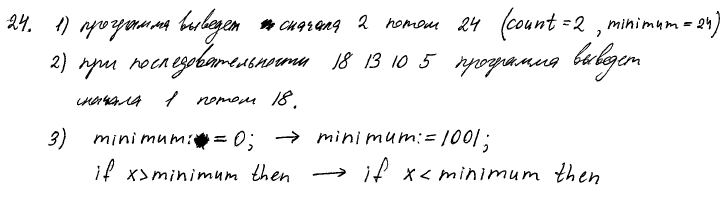 24. 1) программа выведет сначала 2 потом 24 (count = 2 , minimum = 24)
2) при последовательности 18 13 10 5 программа выведет
сначала 1 потом 18.
3) minimum: = 0; → minimum: = 1001;
if x>minimum then → if x < minimum then